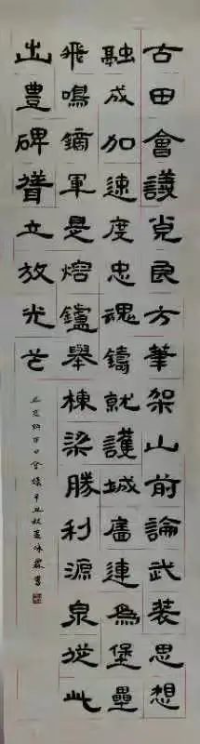 古田會議良方筆架山前論武裝思想
融成加速度忠魂鑄就護城廧連為堡壘
飛鳴鏑軍是熔鑪舉棟梁勝利源泉從此
出豊碑聳立放光芒
辛丑秋 書